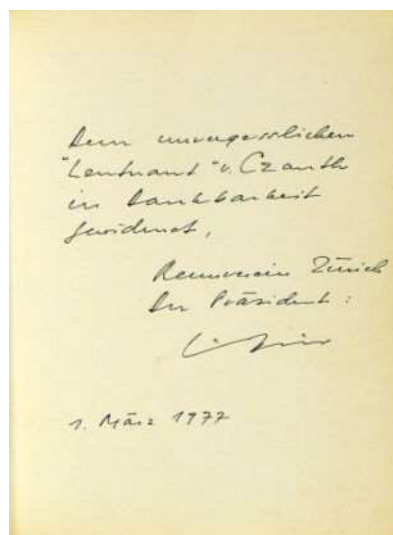 Dem unvergesslichen
"Leutnant" v. Czanth
in Dankbarkeit
gewidmet,
Rennverein Zürich
Der Präsident :
1. März 1977